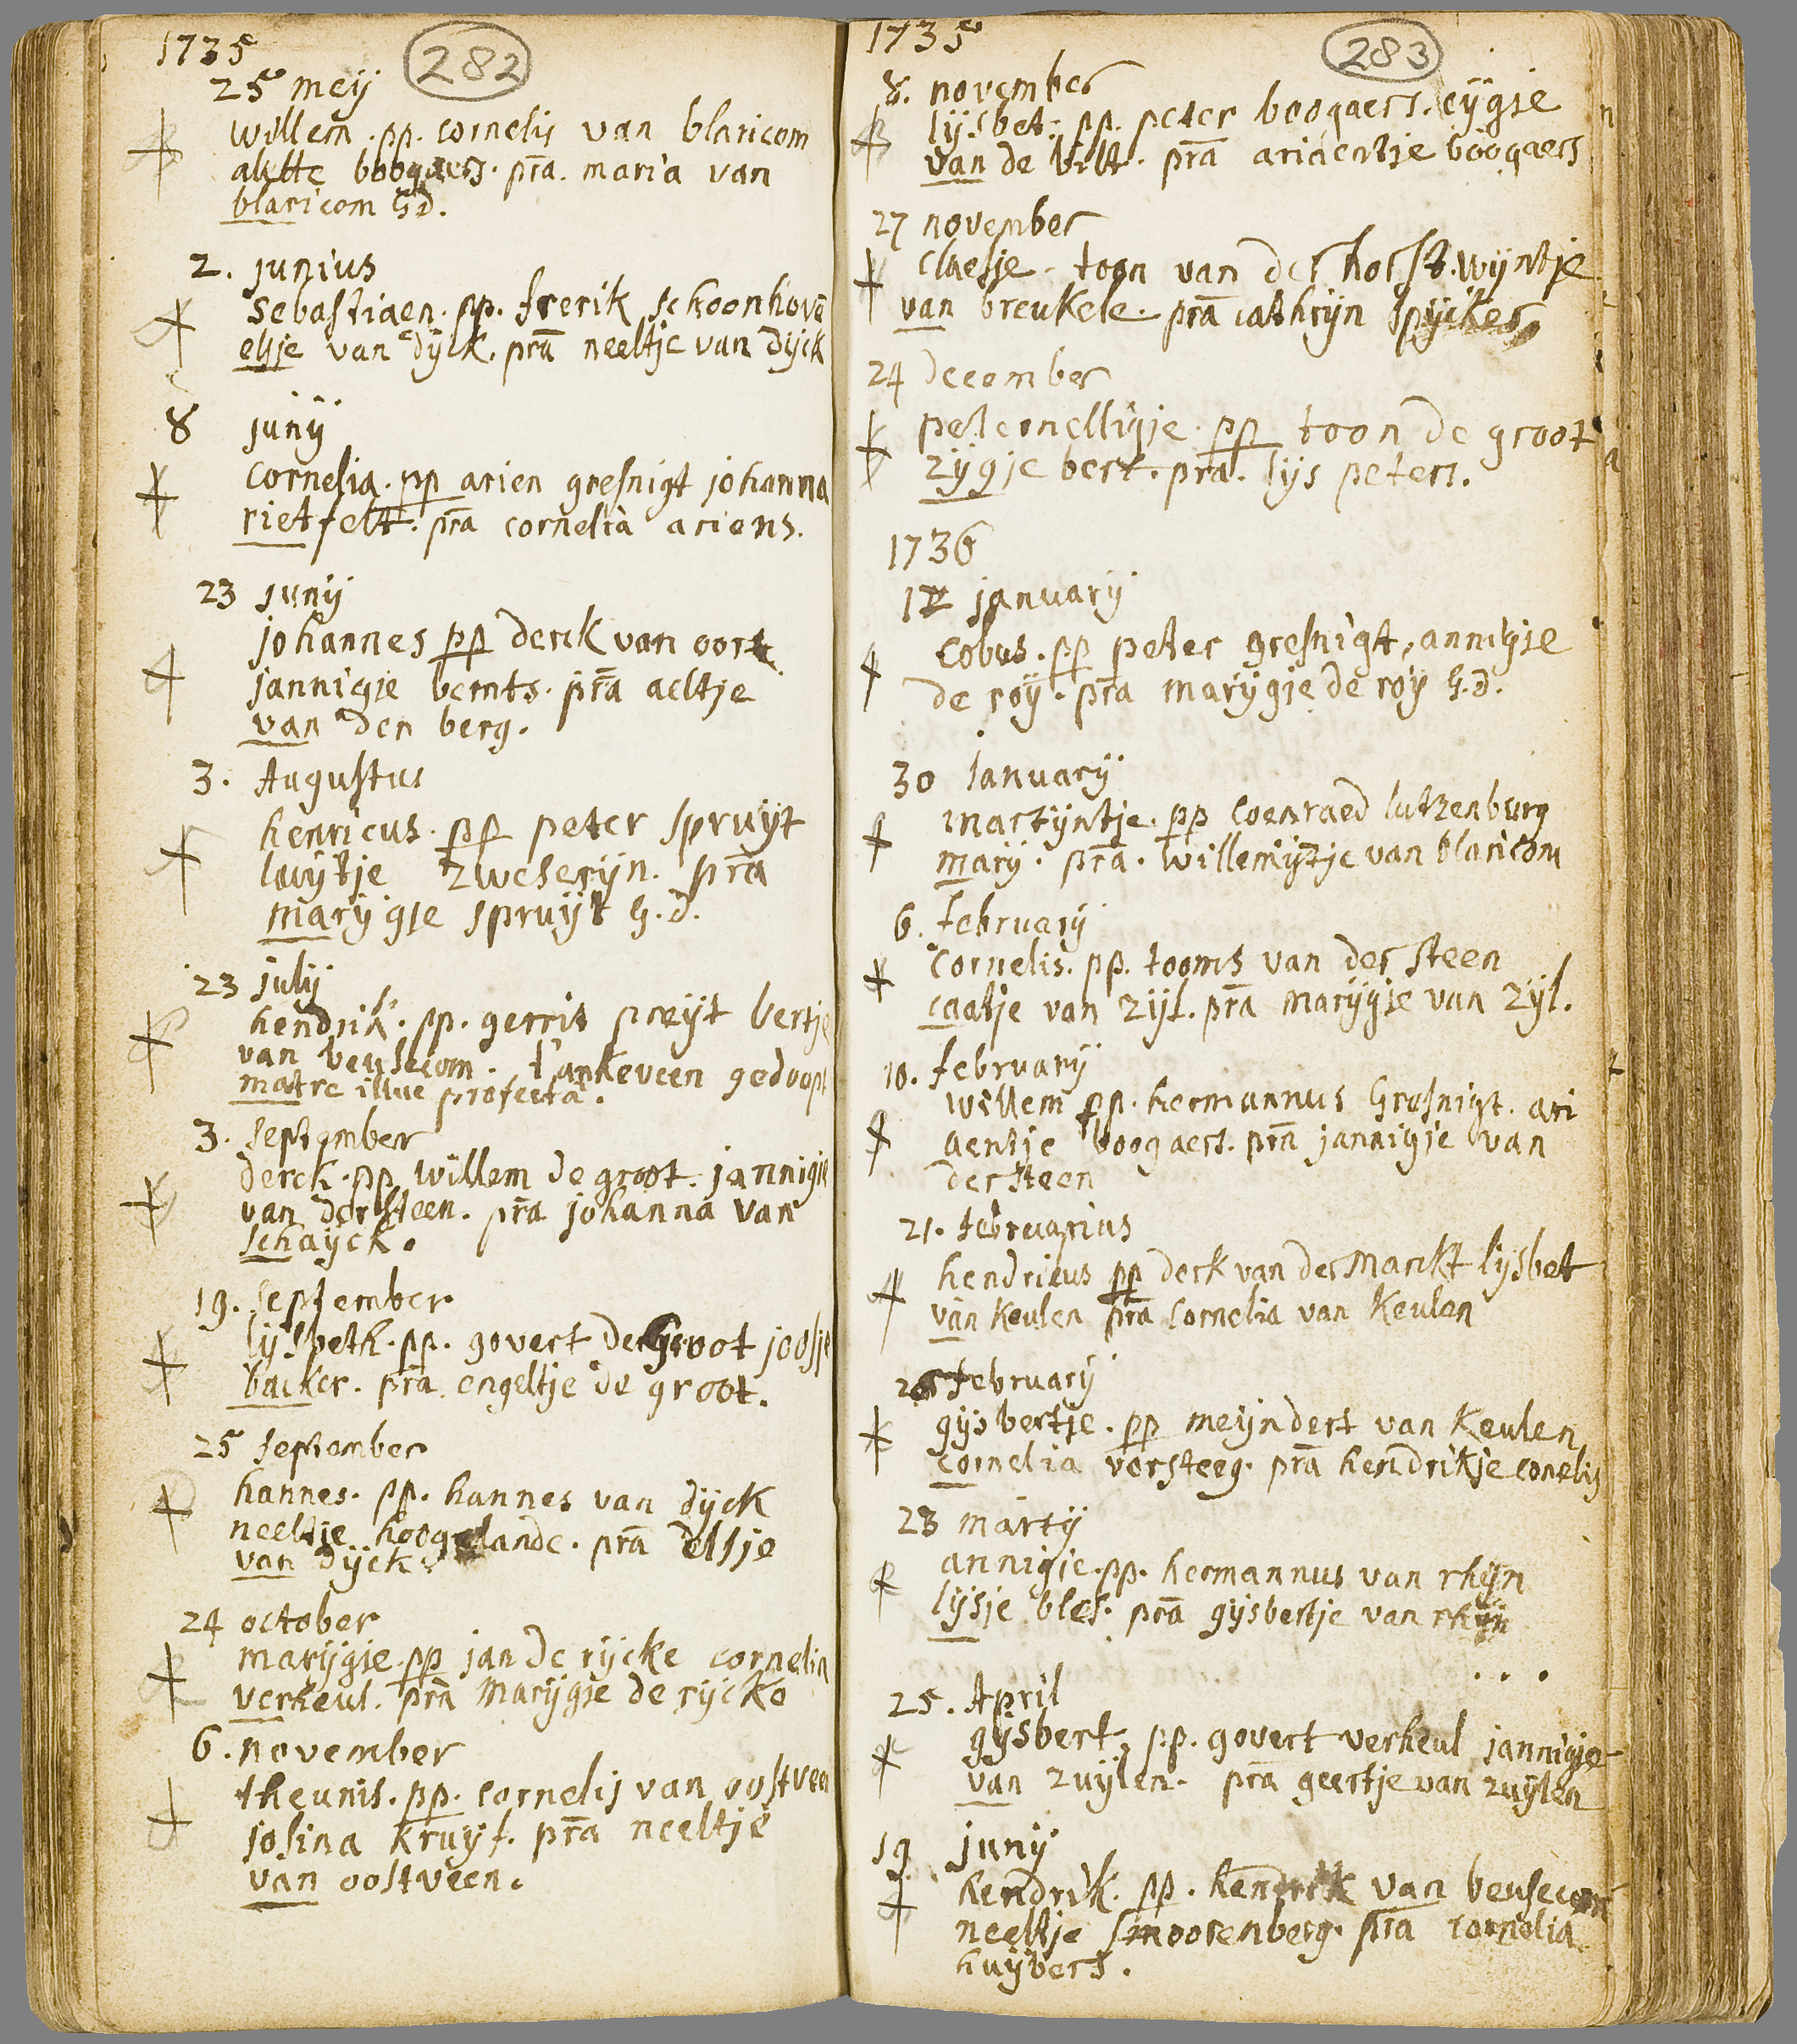 1735
282
25 meij
willem . pp. cornelis van blaricom
alette boogaers. pra. maria van
blaricom G.D.
2. junius
sebastiaen. pp. frerik schoonhove
elsje van dijck. pra neeltje van Dijck
8 junij
cornelia. pp arien gresnigt johanna
rietfelt. pra cornelia ariens.
23 junij
johannes pp derck van oort
jannigie bernts. pra aeltje
van den berg.
3. Augustus
henricus. pp peter spruijt
luijtje zweserijn. pra
marijgje spruijt G.D.
23 julij
hendrik. pp. gerrit preijt bertje
van beusecom. t'ankeveen gedoopt
matre illuc profecta.
3. september
derck. pp willem de groot. jannigie
van der steen. pra johanna van
schaijck.
19. september
lijsbeth. pp. govert de Groot joosje
backer. pra engeltje de groot.
25 september
hannes. pp. hannes van dijck
neeltje hoogelande. pra elsje
van Dijck.
24 october
marijgie. pp jan de rijcke cornelia
verheul. pra Marijgie de rijcke
6. november
theunis. pp. cornelis van oostveen
josina kruijf. pra neeltje
van oostveen.
1735
283
8. november
lijsbet. pp. peter boogaers. eijgie
van de bilt. pra ariaentje boogaers
27 november
claesje. toon van der horst. wijntje
van breukele. pra cathrijn spijckers
24 december
peteonelligje. pp toon de groot
zijgje bert. pra. lijs peters.
1736
12 januarij
cobus. pp peter gresnigt, annigie
de roij. pra marijgie de roij G.D.
30 Ianuarij
martijntje. pp coenraed lutzenburg
marij. pra. willemijtje van blaricom
6. februarij
cornelis. pp. tooms van der steen
caatje van zijl. pra marijgie van zijl.
10. februarij
willem pp. hermannus Gresnigt. ari
aentje boogaers. pra jannigie van
der steen
21. februarius
hendricus pp derk van der Marckt lijsbet
van Keulen pra Cornelia van Keulen
februarij
gijsbertje. pp meijndert van Keulen
cornelia versteeg. pra hendrikje conelis
23 martij
annigie. pp. hermannus van rhijn
lijsje bles. pra gijsbertje van rhijn
25. April
gijsbert, pp. govert verheul jannigje
van zuijlen. pra geertje van zuijlen
19 junij
hendrik. pp. hendrik van beusecom
neeltje smoorenberg. pra cornelia
huijbers.